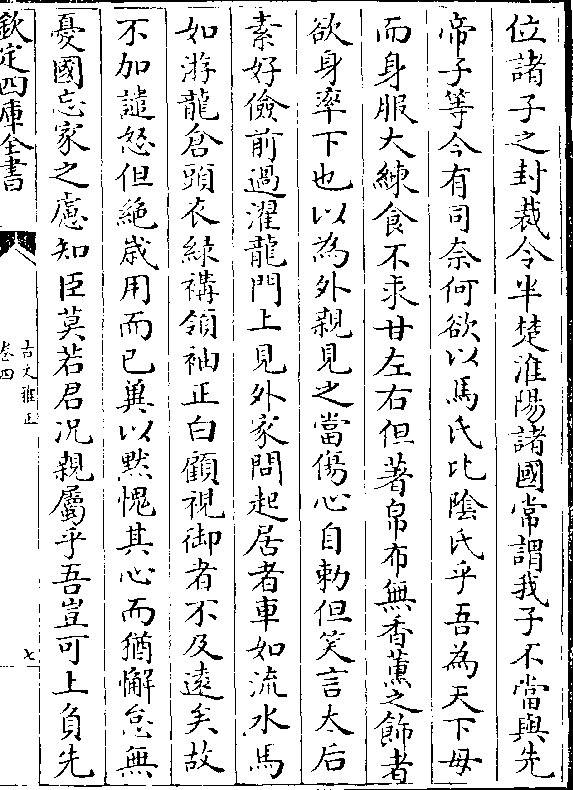 位諸子之封裁令半楚淮陽諸國常謂我子不當與先
帝子等今有司奈何欲以馬氏比隂氏乎吾為天下母
而身服大練食不求甘左右但著帛布無香薰之飾者
欲身率下也以為外親見之當傷心自勅但笑言太后
素好儉前過濯龍門上見外家問起居者車如流水馬
如游龍倉頭衣綠褠領袖正白顧視御者不及遠矣故
不加譴怒但絶嵗用而已兾以黙愧其心而猶懈怠無
憂國忘家之慮知臣莫若君况親屬乎吾豈可上負先
欽定四庫全書
古文雅正
卷四
七